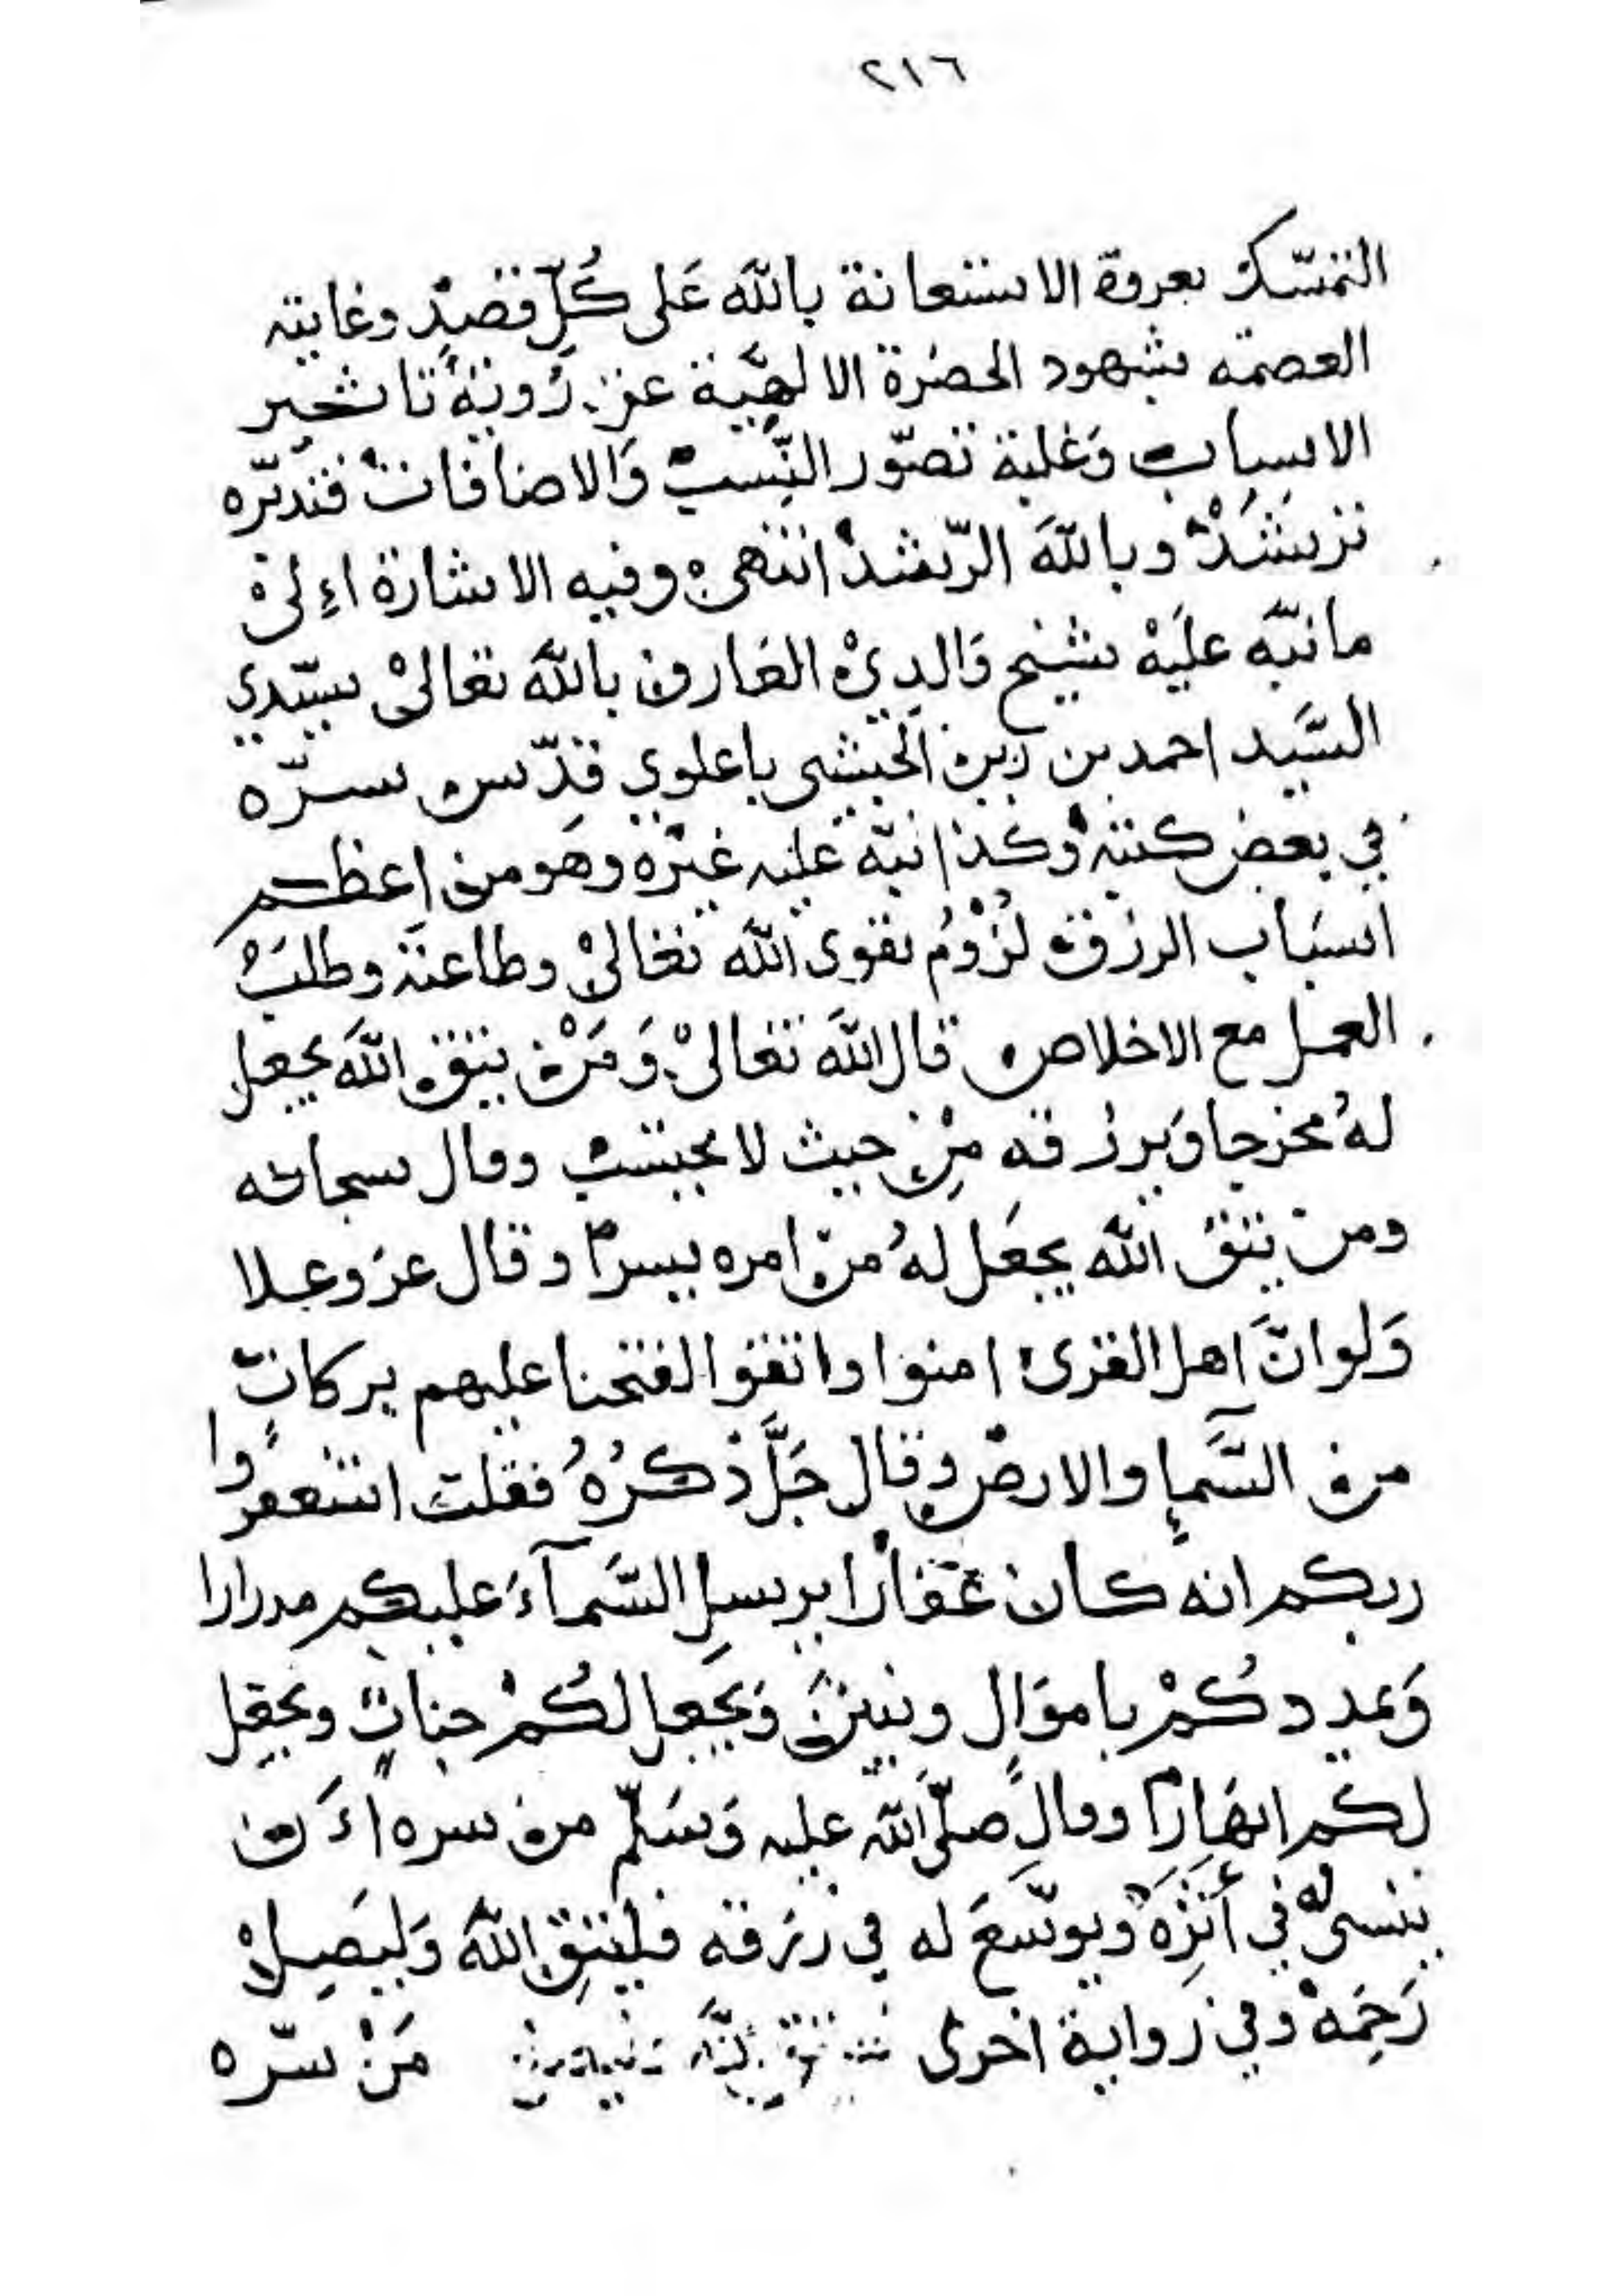 ٢١٦
التمسّك بعروة الاستعانة بالله عَلى كُلّ قصدٍ وغايته
العصمة بشهود الحضرة الالهيّة عن رُوية تاثير
الاسباب وَغلبة تصوّر النِّسب وَالاضافات فتدبّره
ترشَدْ وبالله الرّشد انتهى وفيه الاشارة اءِلىْ
ما نبّه عليَهْ شيخ وَالدِيْ العَارف بالله تعالىْ سيّدي
السَّيد احمد بن زين الحبشي باعلوي قدّس سرّه
في بعض كتبه وَكذا نبّه عليه غيْره وهو من اعظم
اسبَاب الرزق لُزُوْمُ تقوى الله تعَالىْ وطاعته وطلبُ
العمل مع الاخلاص قال الله تعَالىْ وَمَنْ يتق الله يجعل
لهُ مخرجا وَيرزقه مِنْ حيث لا يحتسب وقال سبحانه
ومن يتق الله يجعَل لهُ من امره يسرًا وقال عز وعلا
وَلو انَّ اهل القرى امنوا واتقوا لفتحنا عليهم بركاتٍ
من السَّمآءِ والارض وقال جَلَّ ذكرُهُ فقلت استغفروا
ربكم انه كان غفارًا يرسلِ السَّمآءَ عليكم مدرارا
وَيمددكُمْ باموَالٍ وبنينَ وَيَجعل لكُمْ جناتٍ ويجعل
لكم انهَارًا وقال صلّى الله عليه وَسَلّم من سره اءَن
ينسىْ لهُ في أثَرِهَ ويوسّعَ له في رزقه فليتق الله وَليصِلْ
رَحِمَهْ وفي رواية اخرى مَنْ سرّه